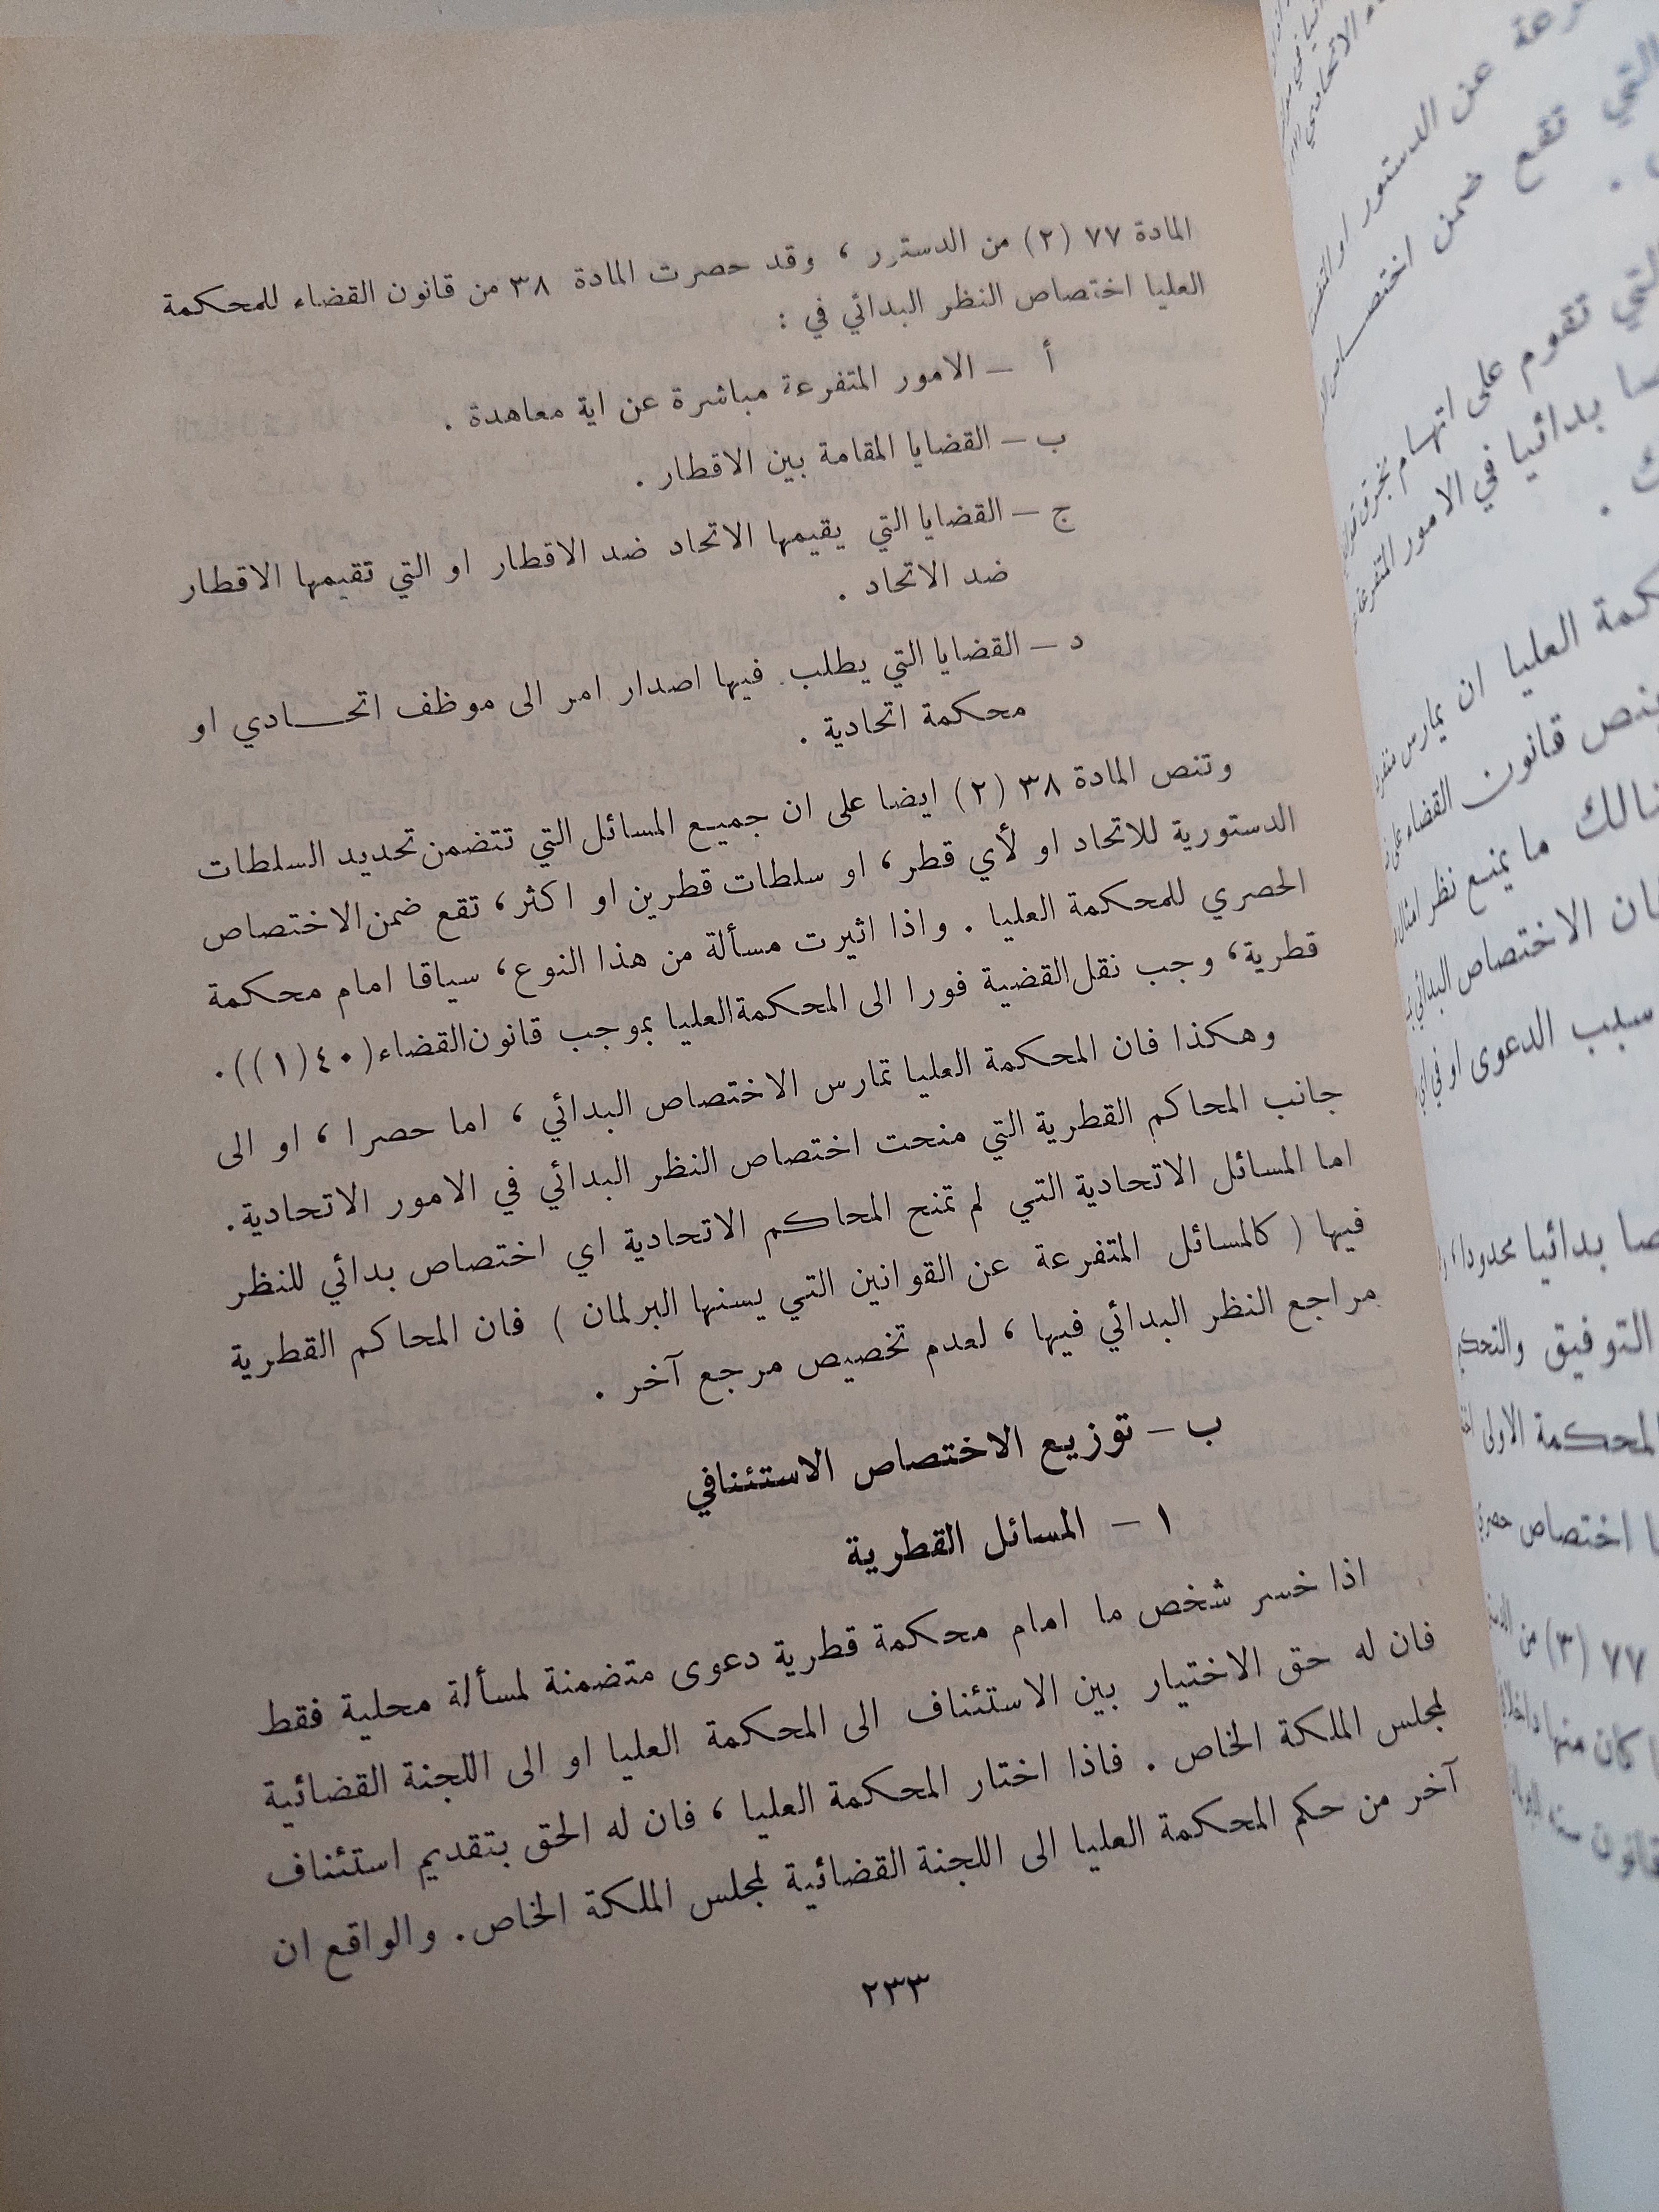 المادة ٧٧ (٢) من الدستور ، وقد حصرت المادة ٣٨ من قانون القضاء للمحكمة
العليا اختصاص النظر البدائي في :
أ – الامور المتفرعة مباشرة عن اية معاهدة .
ب – القضايا المقامة بين الاقطار .
ج – القضايا التي يقيمها الاتحاد ضد الاقطار او التي تقيمها الاقطار
ضد الاتحاد .
د – القضايا التي يطلب فيها اصدار امر الى موظف اتحــادي او
محكمة اتحادية .
وتنص المادة ٣٨ (٢) ايضا على ان جميع المسائل التي تتضمن تحديد السلطات
الدستورية للاتحاد او لأي قطر ، او سلطات قطرين او اكثر ، تقع ضمن الاختصاص
الحصري للمحكمة العليا . واذا اثيرت مسألة من هذا النوع ، سياقا امام محكمة
قطرية ، وجب نقل القضية فورا الى المحكمة العليا بموجب قانون القضاء (٤٠ (١)) .
وهكذا فان المحكمة العليا تمارس الاختصاص البدائي ، اما حصرا ، او الى
جانب المحاكم القطرية التي منحت اختصاص النظر البدائي في الامور الاتحادية .
اما المسائل الاتحادية التي لم تمنح المحاكم الاتحادية اي اختصاص بدائي للنظر
فيها ( كالمسائل المتفرعة عن القوانين التي يسنها البرلمان ) فان المحاكم القطرية
مراجع النظر البدائي فيها ، لعدم تخصيص مرجع آخر .
ب – توزيع الاختصاص الاستئنافي
١ – المسائل القطرية
اذا خسر شخص ما امام محكمة قطرية دعوى متضمنة لمسألة محلية فقط
فان له حق الاختيار بين الاستئناف الى المحكمة العليا او الى اللجنة القضائية
لمجلس الملكة الخاص . فاذا اختار المحكمة العليا ، فان له الحق بتقديم استئناف
آخر من حكم المحكمة العليا الى اللجنة القضائية لمجلس الملكة الخاص . والواقع ان
٢٣٣
عن الدستور
التي تقع ضمن
التي تقوم على اتهام
بدائيا في الامور
العليا ان يمارس
قانون القضاء
ما يمنع نظر
الاختصاص
سبب الدعوى او في
بدائيا محدودا
التوفيق
المحكمة الاولى
اختصاص
٧٧ (٣) من
كان منها
قانون